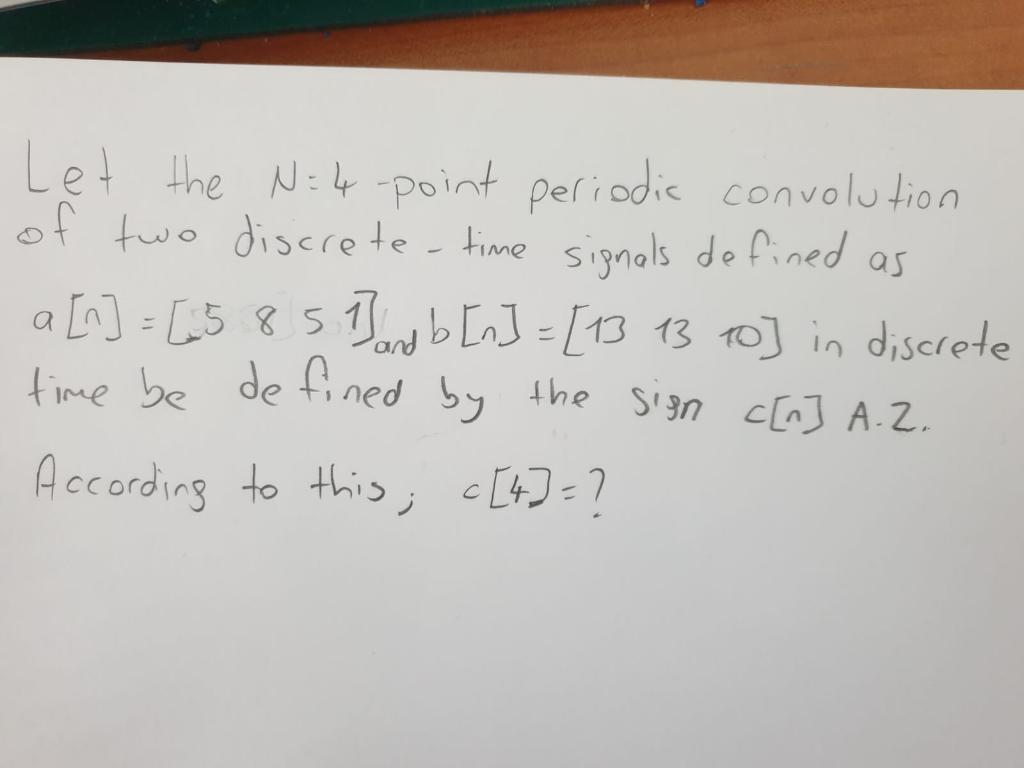 Let the N=4-point periodic convolution
of two discrete-time signals defined as
a[n] = [5 8 5 1] and b[n] = [13 13 10] in discrete
time be defined by the sign c[n] A.Z.
According to this; c[4]=?